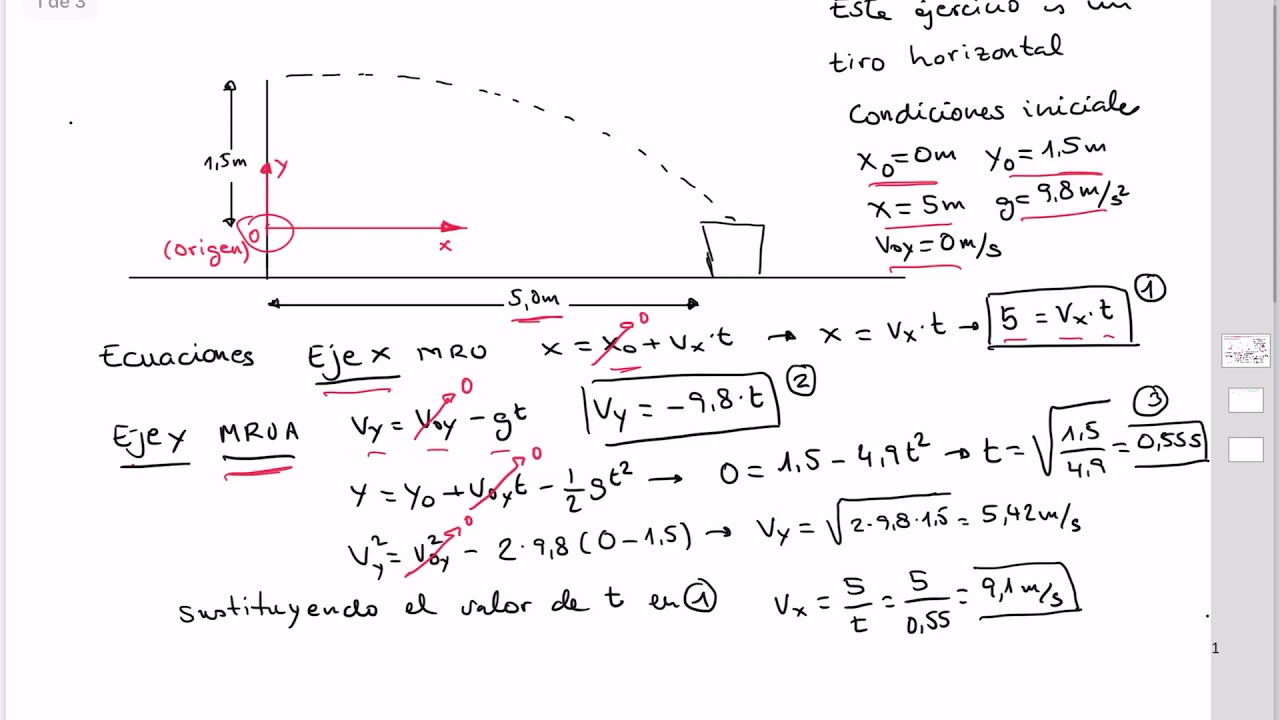 1 de 3
Este ejercicio es un
tiro horizontal
Condiciones iniciales
x₀ = 0m y₀ = 1,5m
x = 5m g = 9,8 m/s²
v₀y = 0 m/s
1,5m
y
0
(origen)
x
5,0m
Ecuaciones Eje x MRU x = x₀ + vₓ·t → x = vₓ·t → 5 = vₓ·t ①
0
Eje y MRUA vy = v₀y - gt vy = -9,8·t ②
0
y = y₀ + v₀y t - 1/2 gt² → 0 = 1,5 - 4,9t² → t = √(1,5/4,9) = 0,55s ③
0
vy² = v₀y² - 2·9,8 (0 - 1,5) → vy = √(2·9,8·1,5) = 5,42 m/s
0
sustituyendo el valor de t en ① vₓ = 5/t = 5/0,55 = 9,1 m/s
1